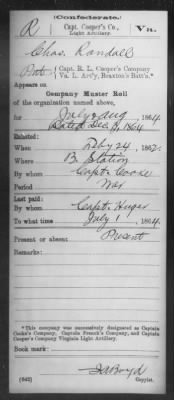 (Confederate.)
R Capt. Cooper's Co., Va.
Light Artillery.
Chas. Randall
Pvt Capt. R. L. Cooper's Company
Va. L. Art'y, Braxton's Batt'n.*
Appears on
Company Muster Roll
of the organization named above,
for July & Aug, 1864
Dated Dec 9, 1864
Enlisted:
When Feby 24, 1862
Where B. Station
By whom Capt. Cooke
Period War
Last paid:
By whom Capt. Huger
To what time July 1, 1864
Present or absent Present
Remarks:
*This company was successively designated as Captain
Cooke's Company, Captain French's Company, and Captain
Cooper's Company Virginia Light Artillery.
Book mark:
(642) Copyist.